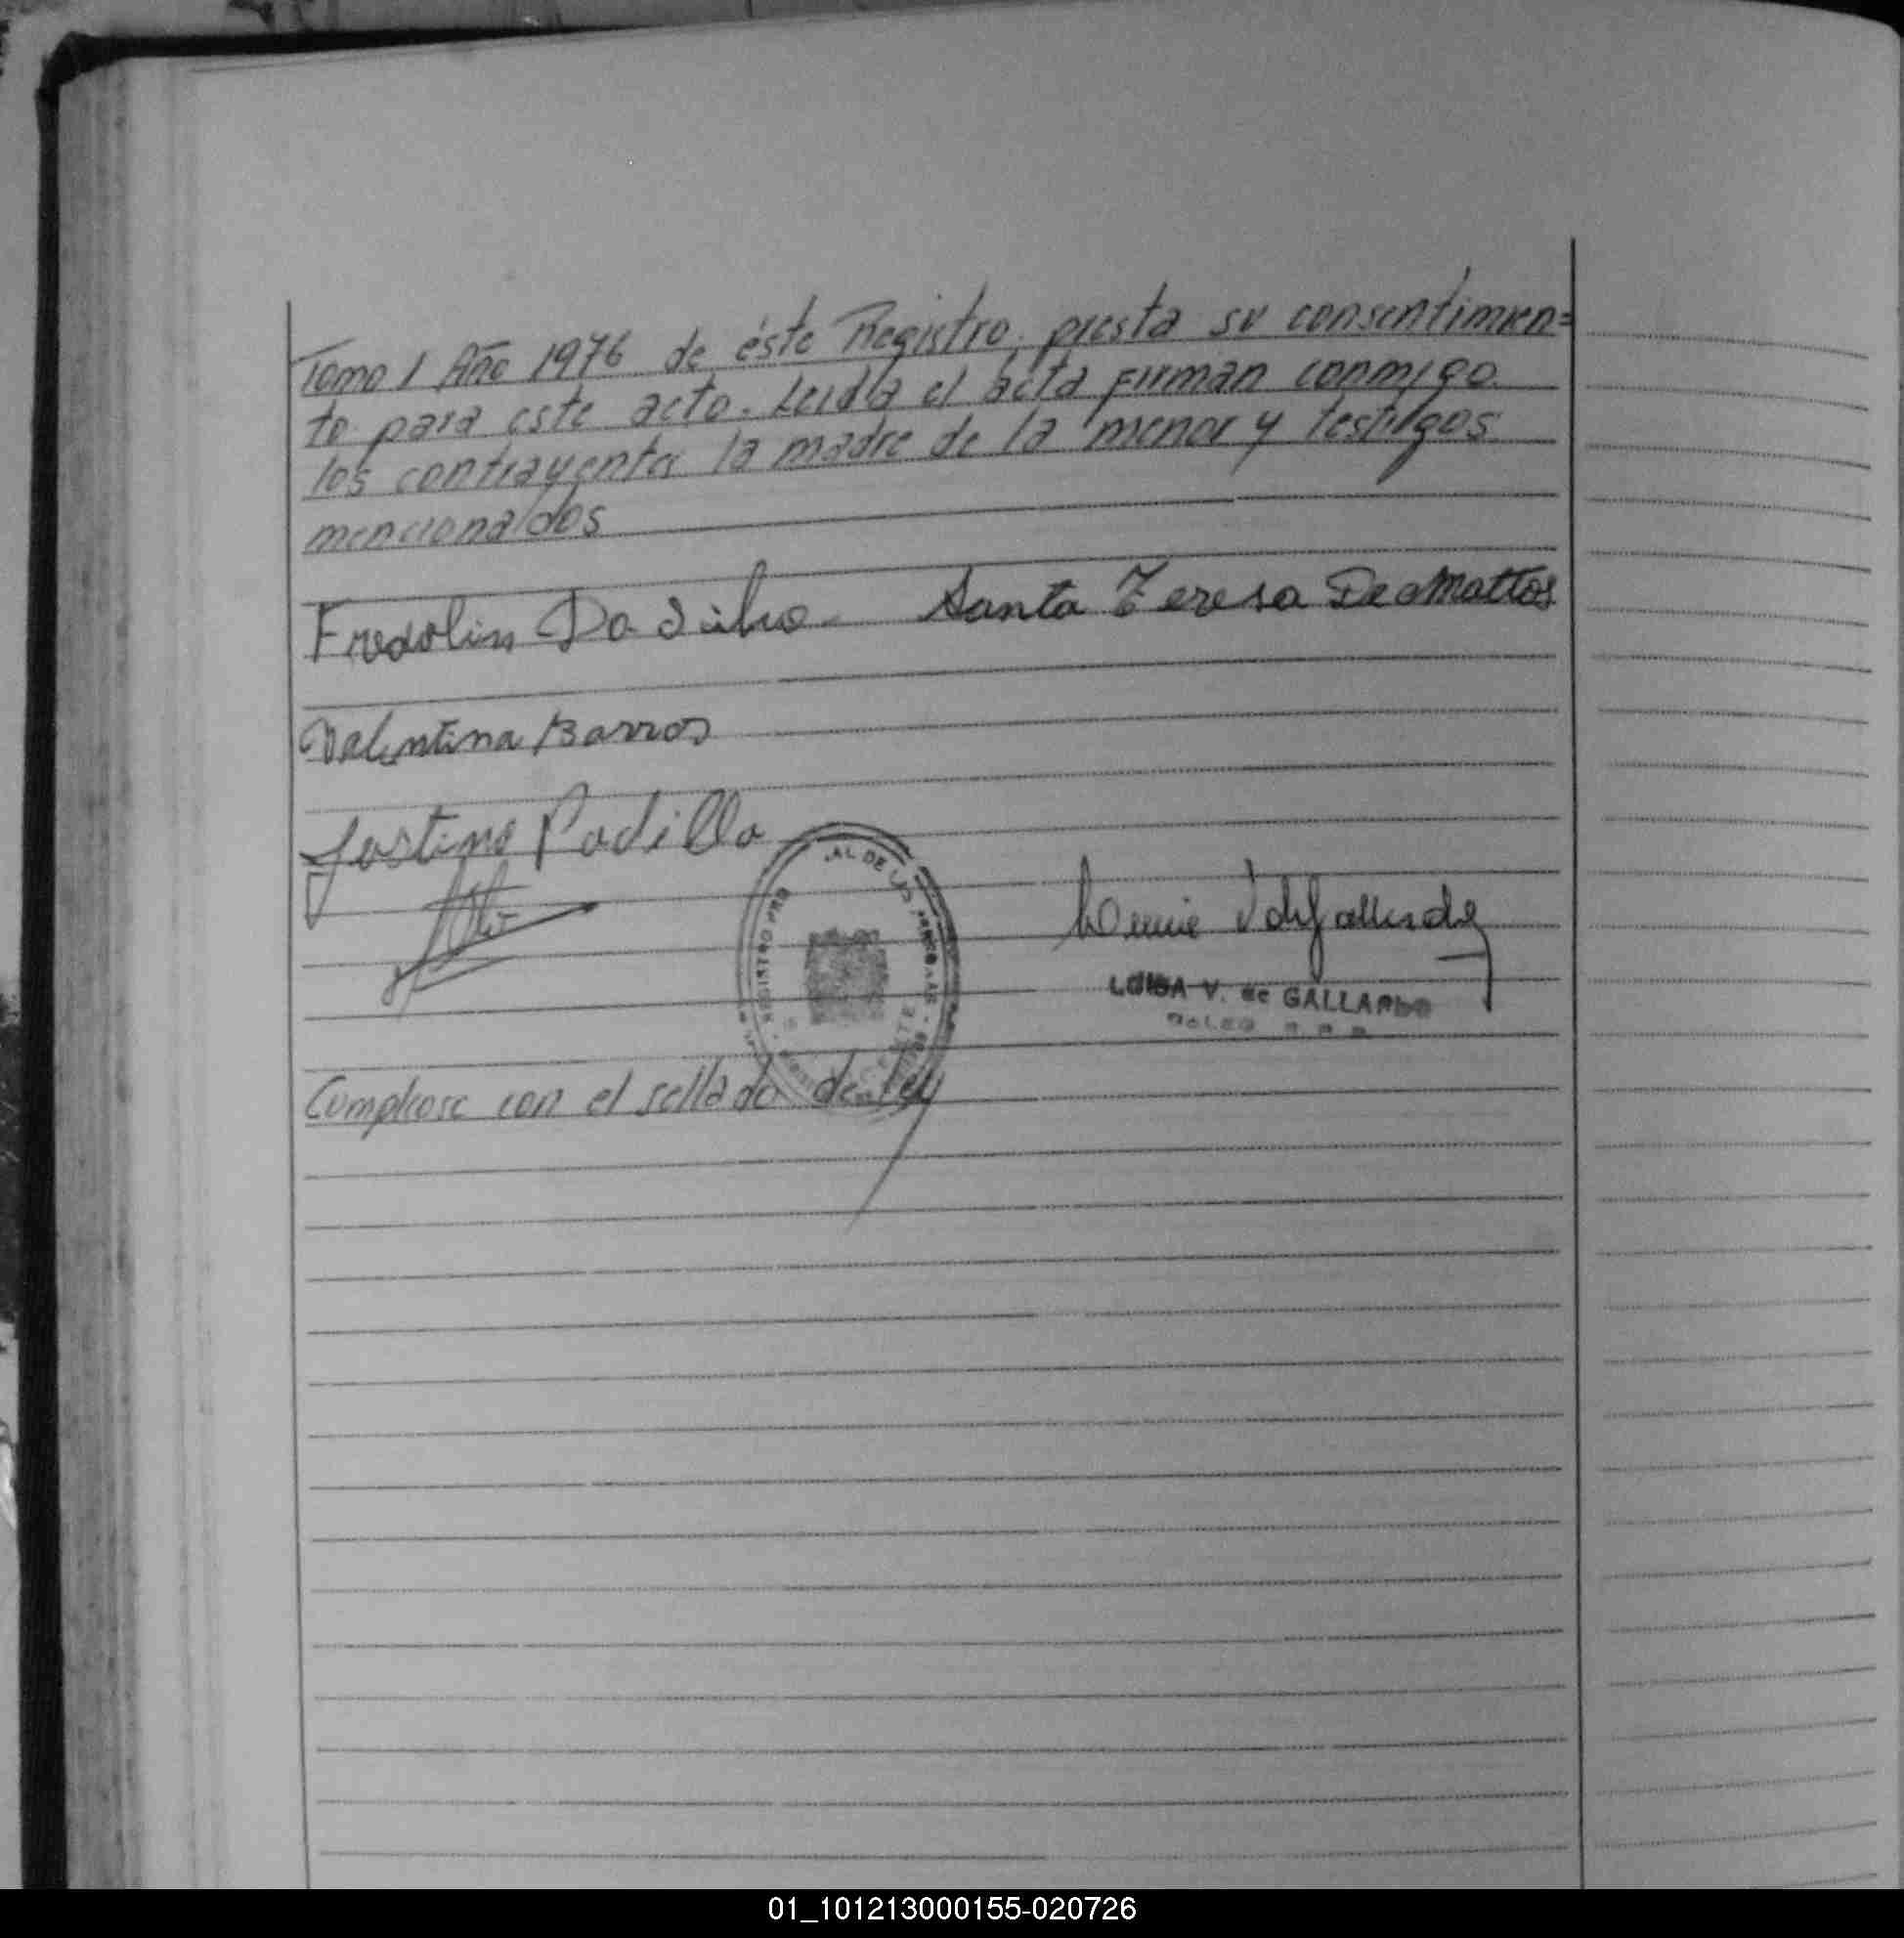 Tomo 1 Año 1976 de éste Registro. presta su consentimien=
to para este acto. Leida el acta firman conmigo
los contrayentes la madre de la menor y testigos
mencionados
Fredolin Da Silva Santa Teresa De Mattos
Valentina Barros
Justino Padilla
LUISA V. de GALLARDO
Cumplease con el sellado de ley
01_101213000155-020726